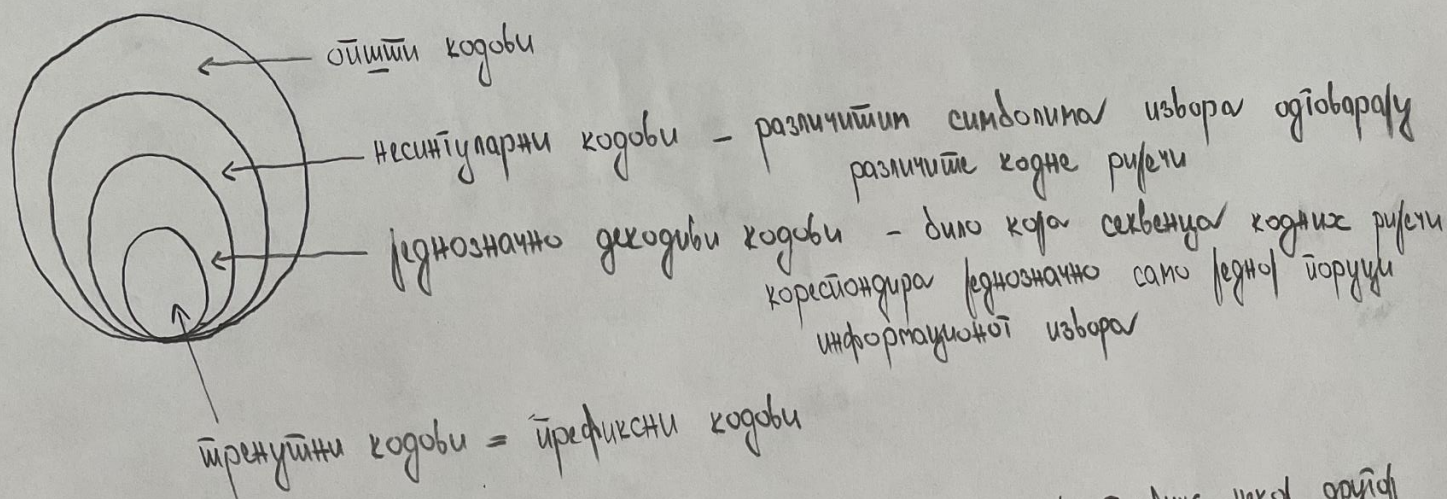 општи кодови
несингуларни кодови – различитим симболима извора одговарају
различите кодне ријечи
једнозначно декодиви кодови – било која секвенца кодних ријечи
кореспондира једнозначно само једној поруци
информационог извора
тренутни кодови = префиксни кодови